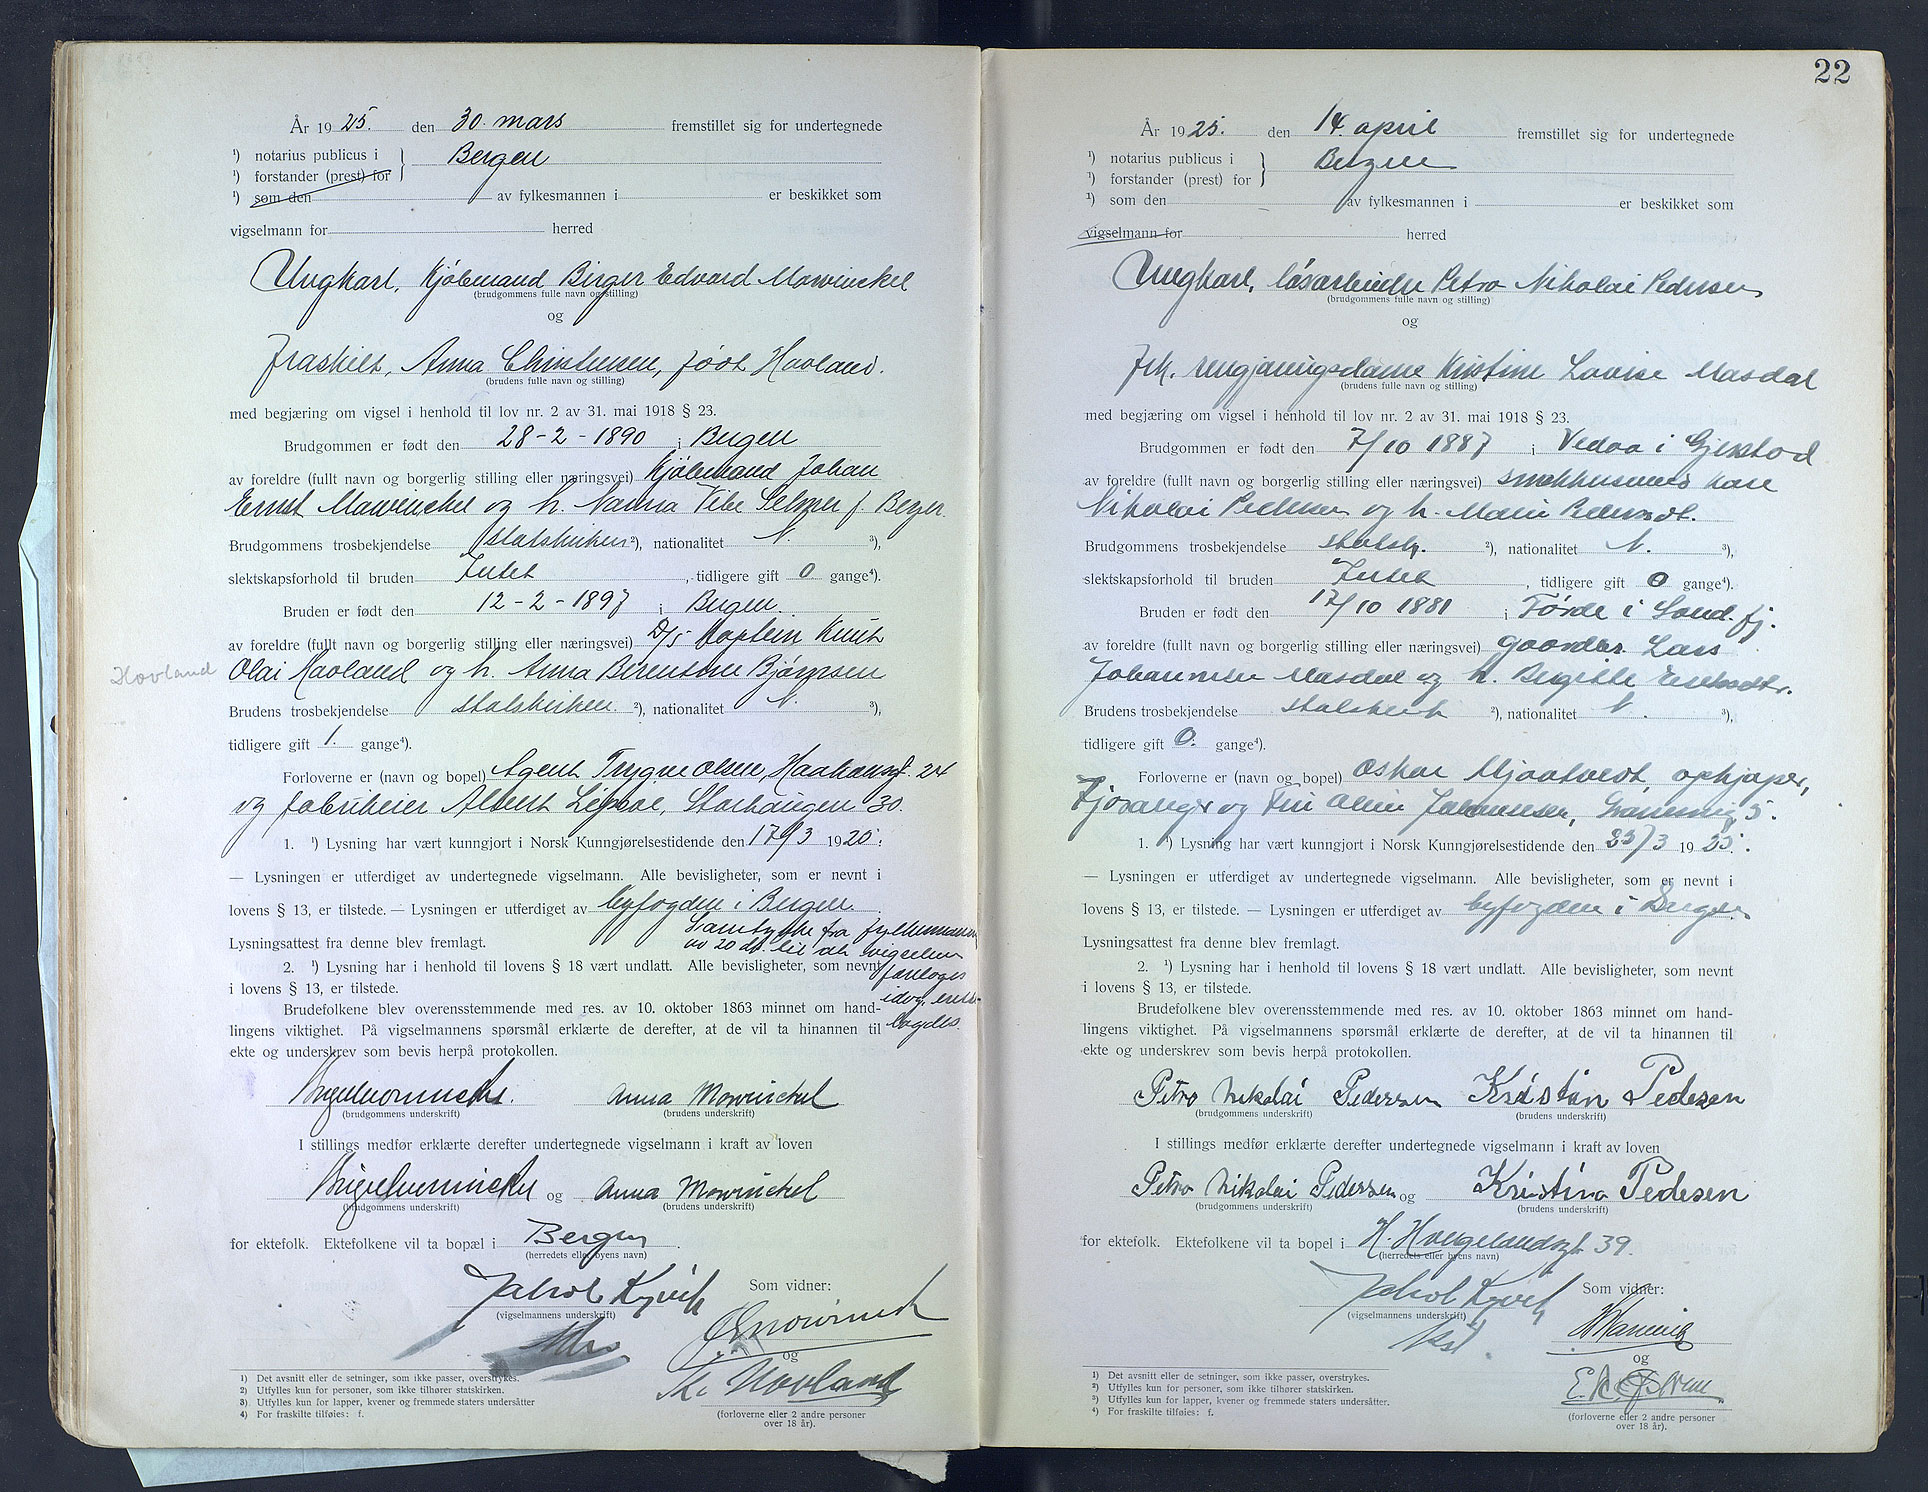 År 1925. den 30. mars fremstillet sig for undertegnede
¹) notarius publicus i } Bergen
¹) forstander (prest) for
¹) som den av fylkesmannen i er beskikket som
vigselmann for herred
Ungkarl, Kjøbmand Birger Edvard Mowinckel
(brudgommens fulle navn og stilling)
og
fraskilt, Anna Christensen, født Hovland.
(brudens fulle navn og stilling)
med begjæring om vigsel i henhold til lov nr. 2 av 31. mai 1918 § 23.
Brudgommen er født den 28-2-1890 i Bergen
av foreldre (fullt navn og borgerlig stilling eller næringsvei) Kjøbmand Johan
Ernst Mowinckel og h. Nanna Vibe Selmer f. Beyer
Brudgommens trosbekjendelse statskirken ²), nationalitet N. ³),
slektskapsforhold til bruden Intet, tidligere gift 0 gange⁴).
Bruden er født den 12-2-1897 i Bergen.
av foreldre (fullt navn og borgerlig stilling eller næringsvei) D/S Kaptein Knut
Hovland
Olai Haoland og h. Anna Berentine Bjørnsen
Brudens trosbekjendelse statskirken ²), nationalitet N. ³),
tidligere gift 1. gange⁴).
Forloverne er (navn og bopel) Agent Trygve Olsen, Haakonsgt. 24
og fabrikeier Albert Lepsøe, Storhaugen 30.
1. ¹) Lysning har vært kunngjort i Norsk Kunngjørelsestidende den 17/3 1925.
— Lysningen er utferdiget av undertegnede vigselmann. Alle bevisligheter, som er nevnt i
lovens § 13, er tilstede. — Lysningen er utferdiget av byfogden i Bergen.
Lysningsattest fra denne blev fremlagt. Samtykke fra fylkesmannen
av 20 ds. til at vigselen
2. ¹) Lysning har i henhold til lovens § 18 vært undlatt. Alle bevisligheter, som nevnt foretages
i lovens § 13, er tilstede. idag,
Brudefolkene blev overensstemmende med res. av 10. oktober 1863 minnet om hand-
lingens viktighet. På vigselmannens spørsmål erklærte de derefter, at de vil ta hinannen til
ekte og underskrev som bevis herpå protokollen.
Anna Mowinckel
(brudgommens underskrift) (brudens underskrift)
I stillings medfør erklærte derefter undertegnede vigselmann i kraft av loven
og Anna Mowinckel
(brudgommens underskrift) (brudens underskrift)
for ektefolk. Ektefolkene vil ta bopæl i Bergen
(herredets eller byens navn)
Jakob Kyvik Som vidner:
(vigselmannens underskrift)
Mowinckel
og
Hovland
(forloverne eller 2 andre personer
over 18 år).
1) Det avsnitt eller de setninger, som ikke passer, overstrykes.
2) Utfylles kun for personer, som ikke tilhører statskirken.
3) Utfylles kun for lapper, kvener og fremmede staters undersåtter
4) For fraskilte tilføies: f.
22
År 1925. den 14. april fremstillet sig for undertegnede
¹) notarius publicus i } Bergen
¹) forstander (prest) for
¹) som den av fylkesmannen i er beskikket som
vigselmann for herred
Ungkarl, løsarbeider Petro Nikolai Pedersen
(brudgommens fulle navn og stilling)
og
Frk. rengjøringsdame Kristine Lovise Masdal
(brudens fulle navn og stilling)
med begjæring om vigsel i henhold til lov nr. 2 av 31. mai 1918 § 23.
Brudgommen er født den 7/10 1887 i Vedaa i Gjerstad
av foreldre (fullt navn og borgerlig stilling eller næringsvei)
Nikolai Pedersen og h.
Brudgommens trosbekjendelse statsk. ²), nationalitet N. ³),
slektskapsforhold til bruden Intet, tidligere gift 0 gange⁴).
Bruden er født den 17/10 1881 i Førde i Sond.fj.
av foreldre (fullt navn og borgerlig stilling eller næringsvei) gaardbr. Lars
Johannesen Masdal og h. Birgitte
Brudens trosbekjendelse statskirk ²), nationalitet N. ³),
tidligere gift 0. gange⁴).
Forloverne er (navn og bopel) Oskar Mjaatvedt, opkjøper,
Fjøsanger og Johannesen, 5.
1. ¹) Lysning har vært kunngjort i Norsk Kunngjørelsestidende den 25/3 1925.
— Lysningen er utferdiget av undertegnede vigselmann. Alle bevisligheter, som er nevnt i
lovens § 13, er tilstede. — Lysningen er utferdiget av byfogden i Bergen
Lysningsattest fra denne blev fremlagt.
2. ¹) Lysning har i henhold til lovens § 18 vært undlatt. Alle bevisligheter, som nevnt
i lovens § 13, er tilstede.
Brudefolkene blev overensstemmende med res. av 10. oktober 1863 minnet om hand-
lingens viktighet. På vigselmannens spørsmål erklærte de derefter, at de vil ta hinannen til
ekte og underskrev som bevis herpå protokollen.
Petro Nikolai Pedersen Kristin Pedesen
(brudgommens underskrift) (brudens underskrift)
I stillings medfør erklærte derefter undertegnede vigselmann i kraft av loven
Petro Nikolai Pedersen og Kristina Pedesen
(brudgommens underskrift) (brudens underskrift)
for ektefolk. Ektefolkene vil ta bopel i H. Hvegelandsgt 39.
(herredets eller byens navn)
Jakob Kyvik Som vidner:
(vigselmannens underskrift)
og
(forloverne eller 2 andre personer
over 18 år).
¹) Det avsnitt eller de setninger, som ikke passer, overstrykes.
²) Utfylles kun for personer, som ikke tilhører statskirken.
³) Utfylles kun for lapper, kvener og fremmede staters undersåtter.
⁴) For fraskilte tilføies: f.